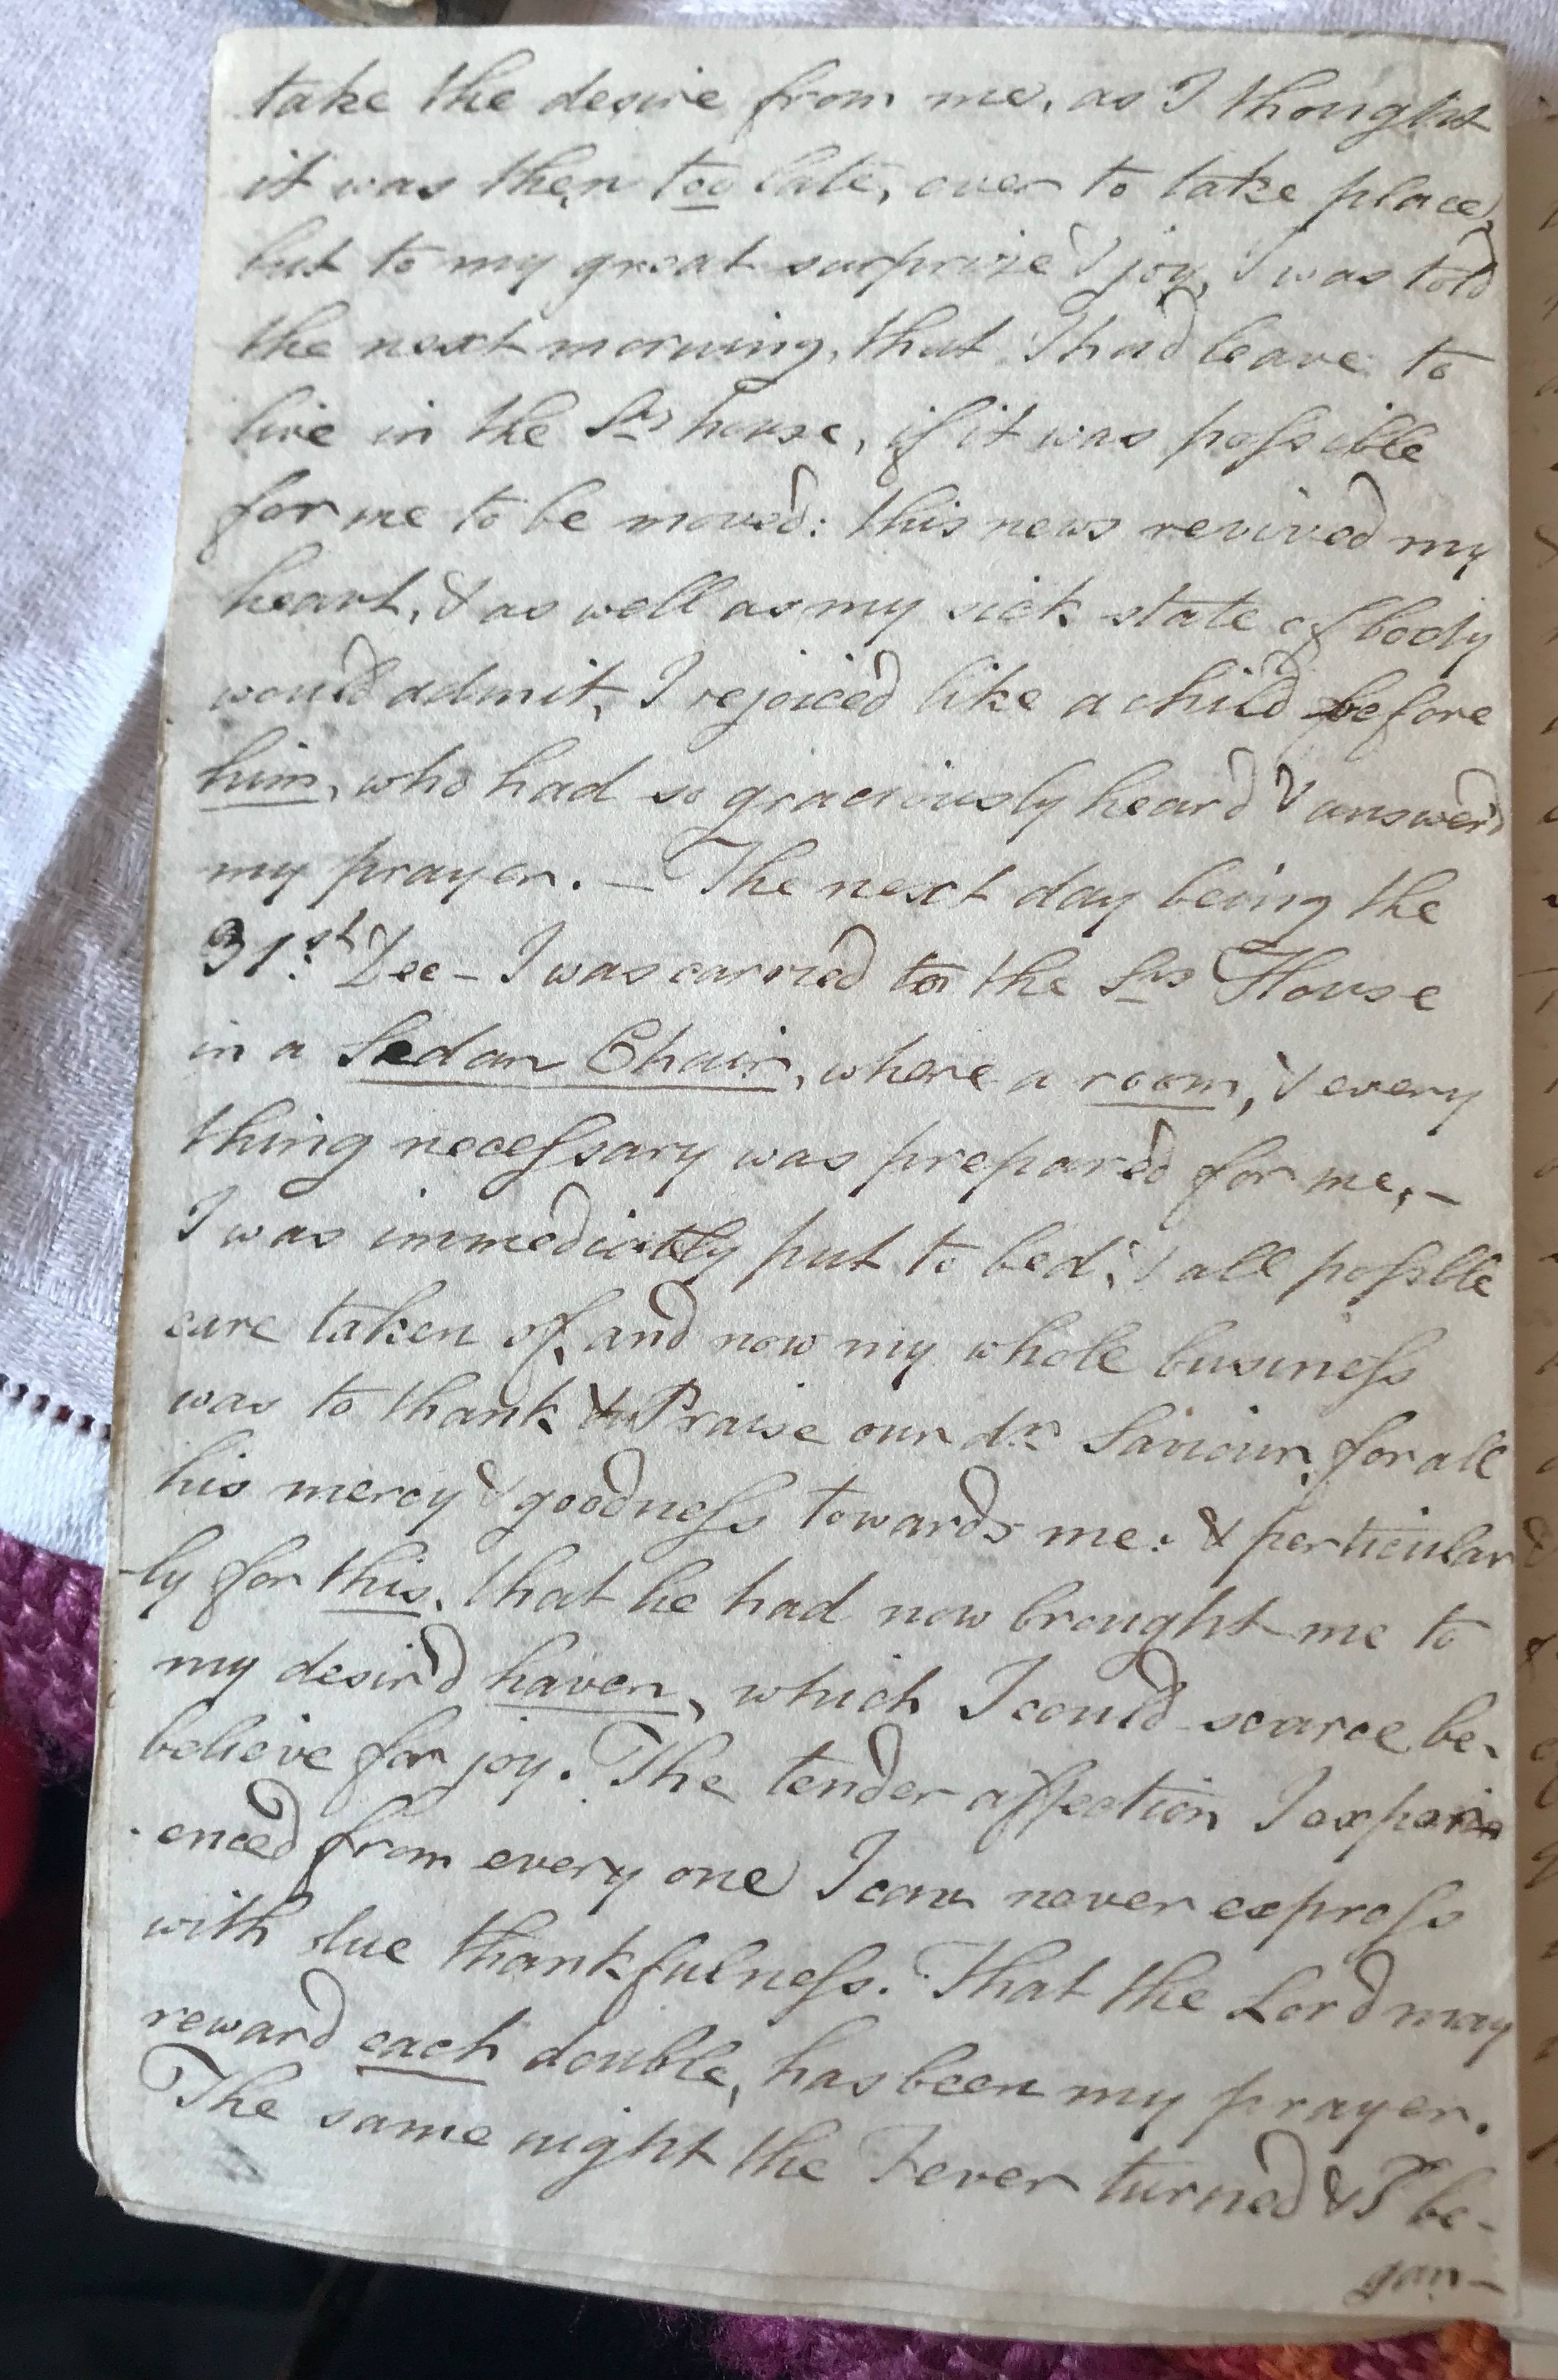 take the desire from me, as I thought
it was then too late, ever to take place,
but to my great surprize & joy, I was told
the next morning, that I had leave to
live in the Srs house, if it was possible
for me to be moved: this news revived my
heart, & as well as my sick state of body
would admit, I rejoiced like a child before
him, who had so graciously heard & answerd
my prayer. — The next day being the
31st Dec — I was carried to the Srs House
in a Sedan Chair, where a room, & every
thing necessary was prepared for me, —
I was immediatly put to bed, & all possible
care taken of, and now my whole business
was to thank & Praise our dr Saviour, for all
his mercy & goodness towards me: & perticular
-ly for this, that he had now brought me to
my desir'd haven, which I could scarce be-
believe for joy. The tender affection I experi
enced from every one I can never express
with due thankfulness. That the Lord may
reward each double, has been my prayer.
The same night the Fever turned & I be-
gan —